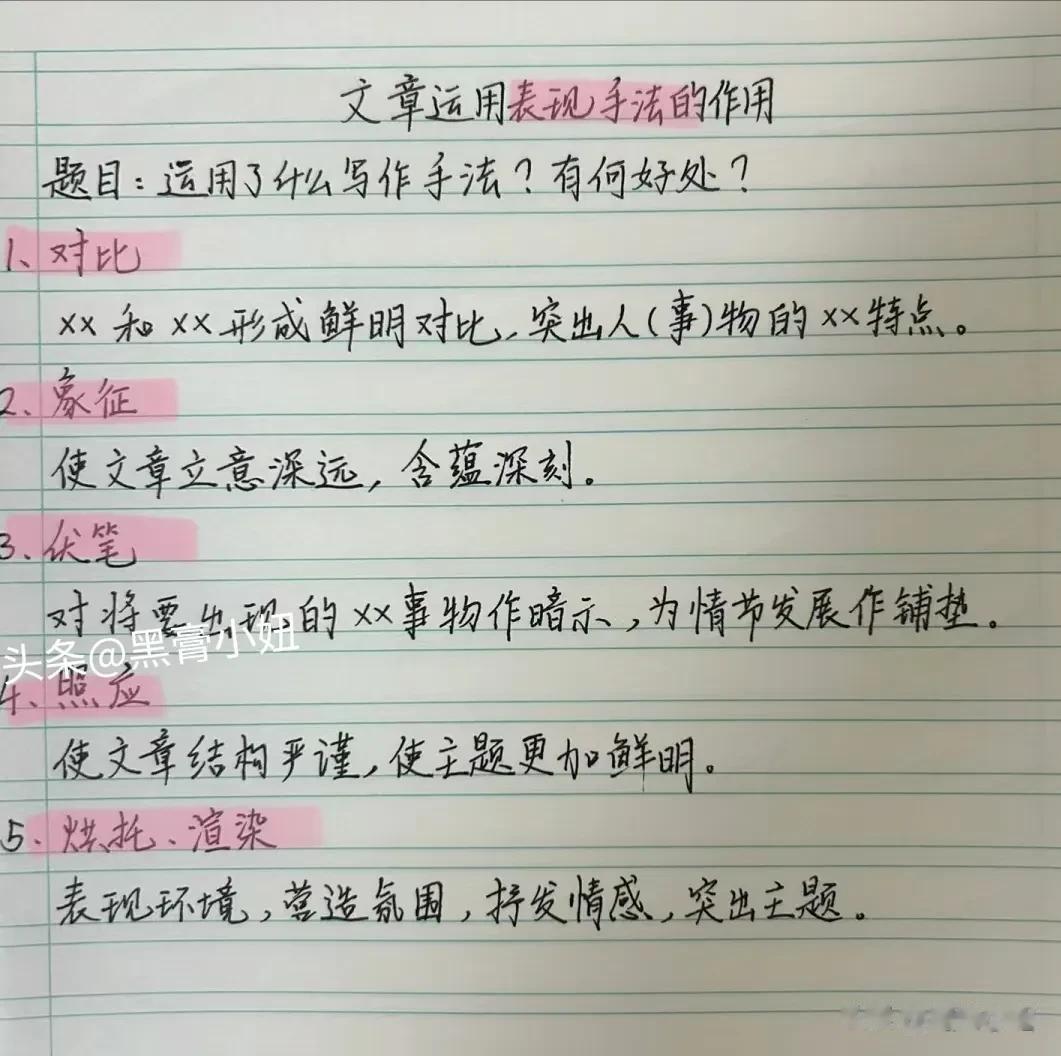 文章运用表现手法的作用
题目：运用了什么写作手法？有何好处？
1、对比
××和××形成鲜明对比，突出人(事)物的××特点。
2、象征
使文章立意深远，含蕴深刻。
3、伏笔
对将要出现的××事物作暗示，为情节发展作铺垫。
头条@黑膏小妞
4、照应
使文章结构严谨，使主题更加鲜明。
5、烘托、渲染
表现环境，营造氛围，抒发情感，突出主题。